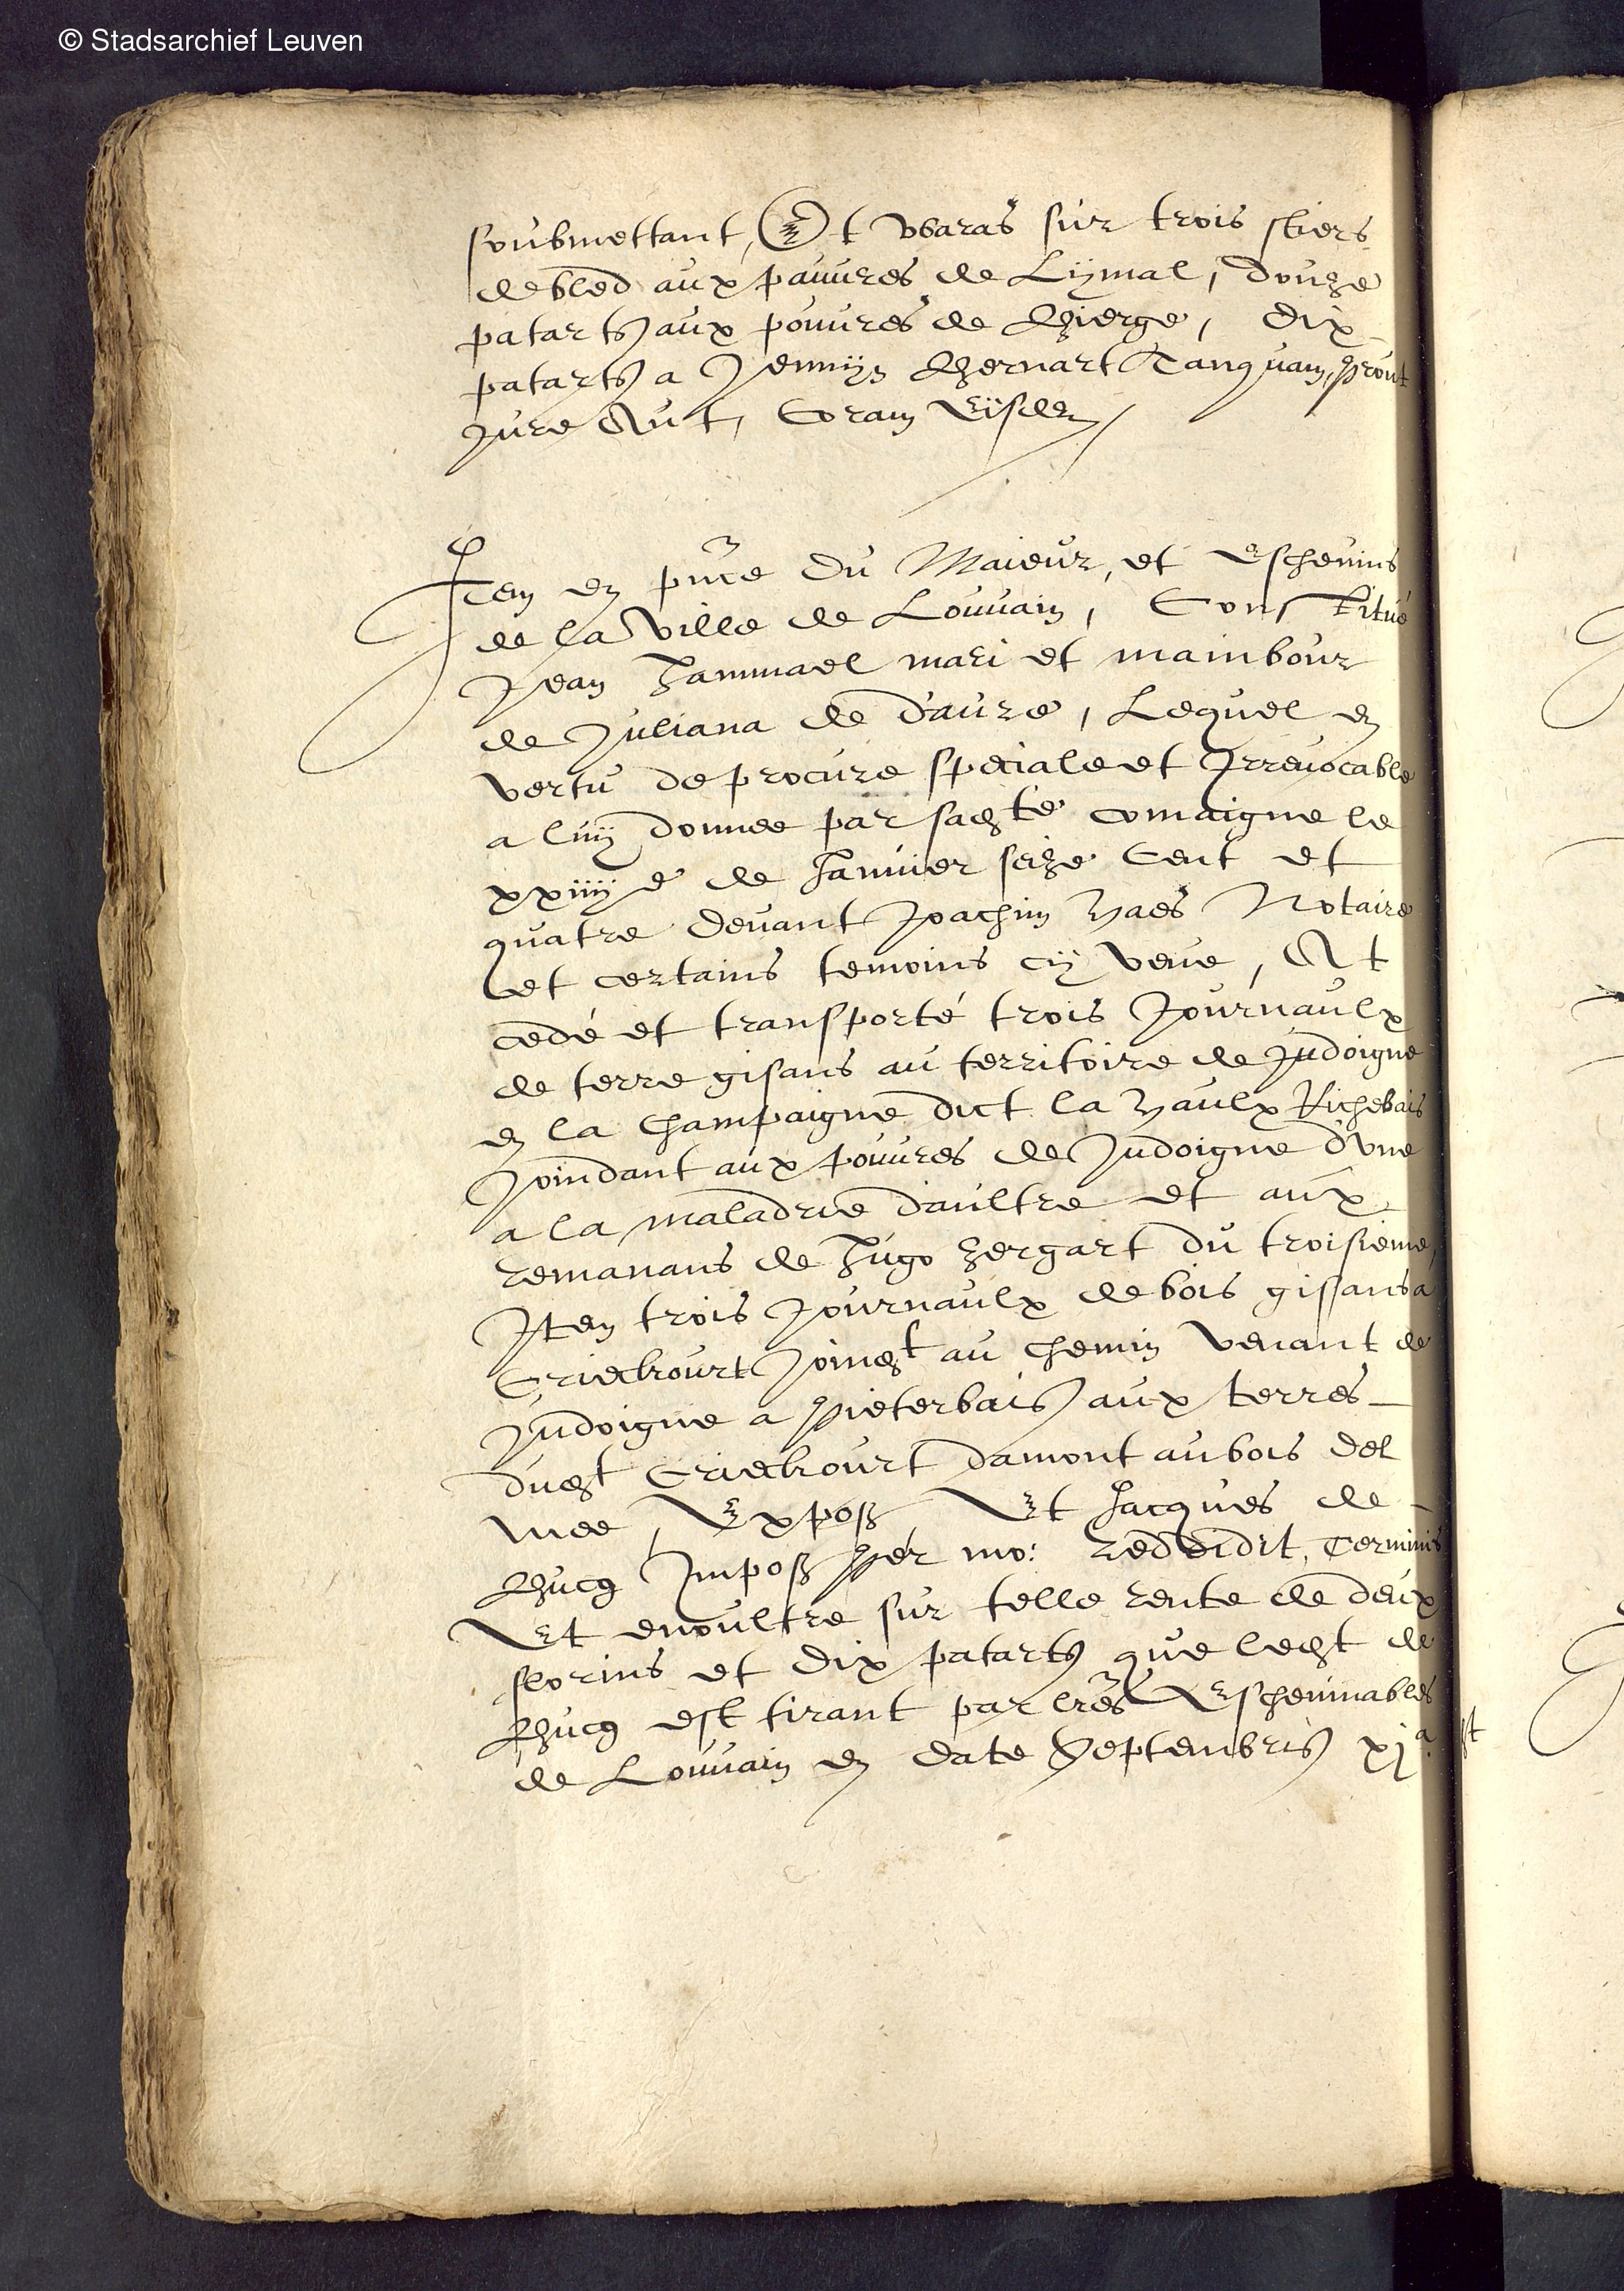 © Stadsarchief Leuven
soubmettant, Et waras sur trois stiers
de bled aux pauures de Lijmal, douze
patarts aux pouures de Bierge, dix
patarts a Jennijn Bernart Tanquam, prout
Jure Aut, Coram
Item en pnce du Maieur, et Escheuins
de la Ville de Louuain, Constitué
Jean Hammael mari et mainbour
de Juliana de Daure, Lequel en
vertu de procure speciale et Irreuocable
a luij donnee par sadte compaigne le
xxiiij e de Januier seize Cent et
quatre deuant Joachim Maes Notaire
et certains temoins cij veue, At
cedé et transporté trois Journaulx
de terre gisans au territoire de Judoigne
en la Champaigne dict la Vaulx Richebais
Joindant aux pouures de Judoigne d'une
a la maladrie d'aultre et aux
remanans de Hugo Hergart du troisieme,
Item trois Journaulx de bois gisans a
Joingt au chemin venant de
Judoigne a Pieterbais aux terres
dudt damont au bois del
mee, Expoß Et Jacques de
Impoß Per mo: reddidit, Terminis
Et enoultre sur telle rente de deux
florins et dix patarts que ledt de
est tirant par lres Escheuinables
de Louuain en date Septembris xja